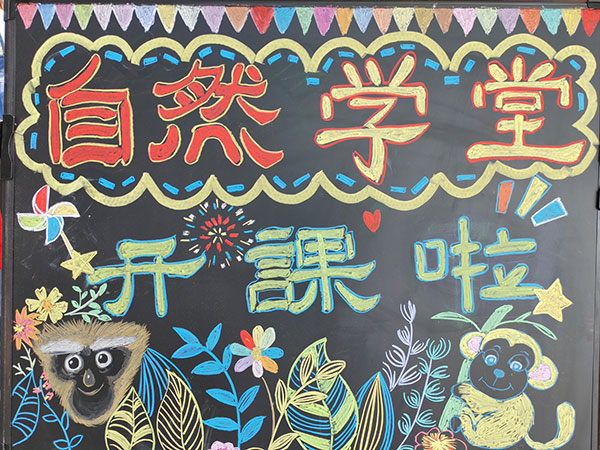 自然学堂
开課啦